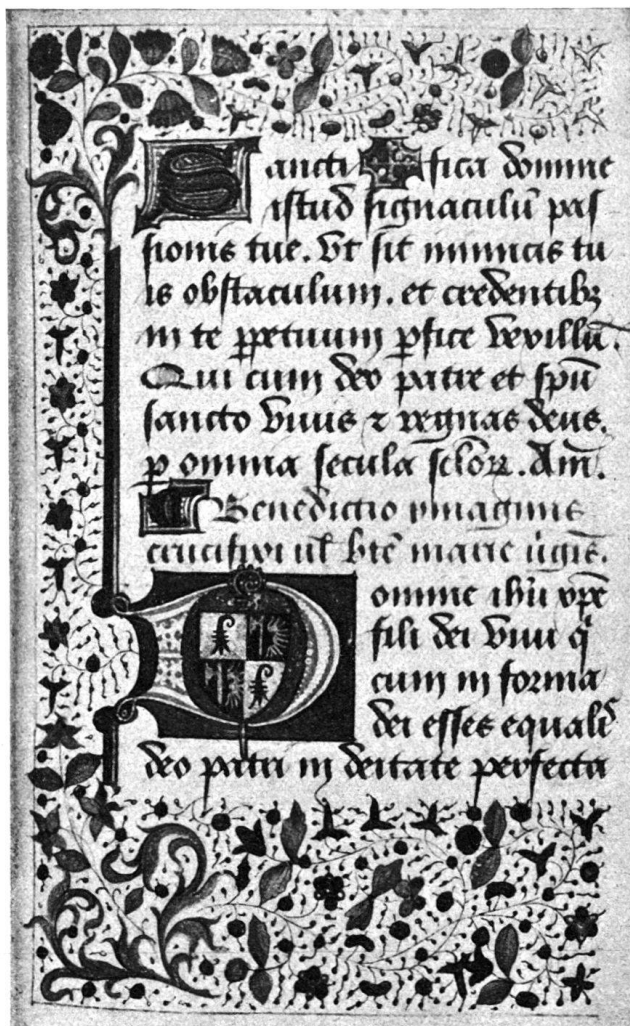 Sancti ✠ fica domine
istud signaculū pas
sionis tue. Vt sit inimicis tu
is obstaculum. et credentibꝫ
in te ꝑpetuum ꝑfice vexillū.
Qui cum deo patre et spū
sancto viuis ⁊ regnas deus.
ꝑ omnia secula sclõꝝ. Am̄.
Benedictio ymaginis
crucifixi ul̄ btē marie ũgis.
Domine ihū xp̄e
fili dei viui q̇
cum in forma
dei esses equalis
deo patri in deitate perfecta